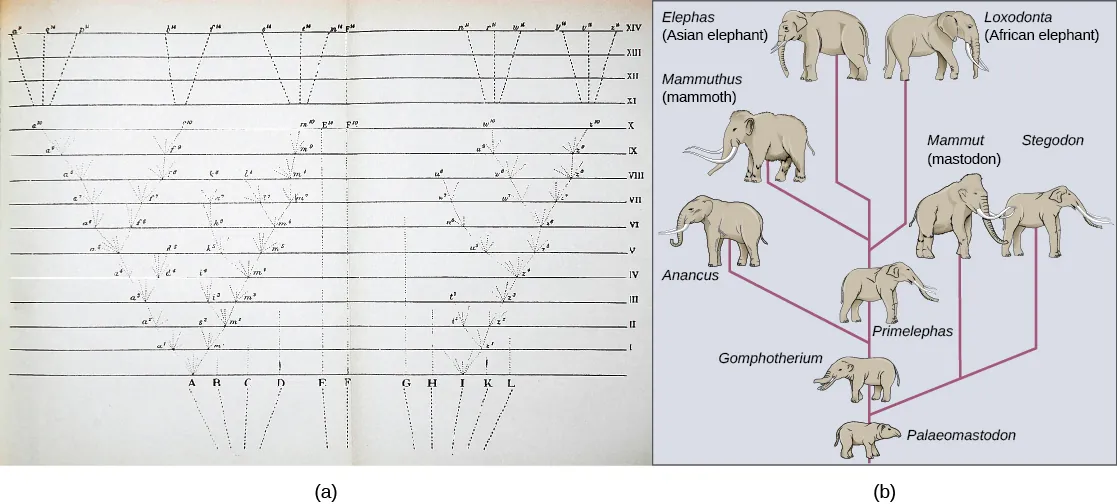 a¹⁴ q¹⁴ p¹⁴ b¹⁴ f¹⁴ o¹⁴ e¹⁴ m¹⁴ F¹⁴ n¹⁴ r¹⁴ w¹⁴ y¹⁴ v¹⁴ z¹⁴ XIV
XIII
XII
XI
a¹⁰ f¹⁰ m¹⁰ E¹⁰ F¹⁰ w¹⁰ z¹⁰ X
a⁹ f⁹ m⁹ u⁹ z⁹ IX
a⁸ f⁸ k⁸ l⁸ m⁸ u⁸ z⁸ VIII
a⁷ f⁷ k⁷ l⁷ m⁷ w⁷ z⁷ VII
a⁶ f⁶ k⁶ m⁶ z⁶ VI
a⁵ d⁵ k⁵ m⁵ u⁵ z⁵ V
d⁴ i⁴ m⁴ z⁴ IV
a³ i³ m³ t³ z³ III
a² s² m² t² z² II
a¹ m¹ z¹ I
A B C D E F G H I K L
(a)
Elephas
(Asian elephant)
Loxodonta
(African elephant)
Mammuthus
(mammoth)
Mammut
(mastodon)
Stegodon
Anancus
Primelephas
Gomphotherium
Palaeomastodon
(b)